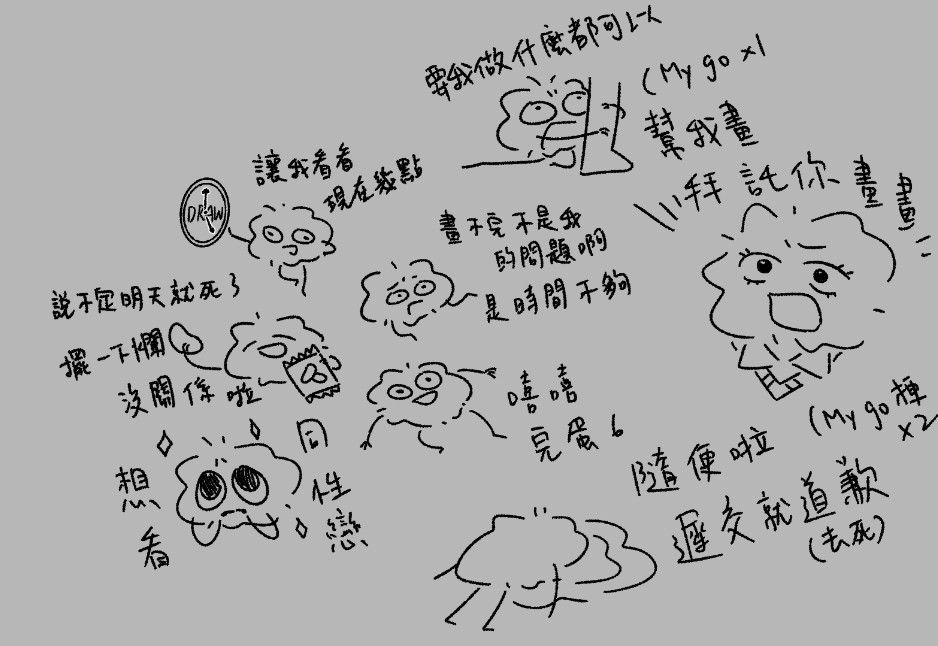 要我做什麼都可以
(My go x1
幫我畫
拜託你畫畫
讓我看看
現在幾點
DRAW
畫不完不是我
的問題啊
是時間不夠
說不定明天就死了
擺一下爛
沒關係啦
嘻嘻
完蛋了
(My go 種
x2
想看
同性戀
隨便啦
遲交就道歉
(去死)